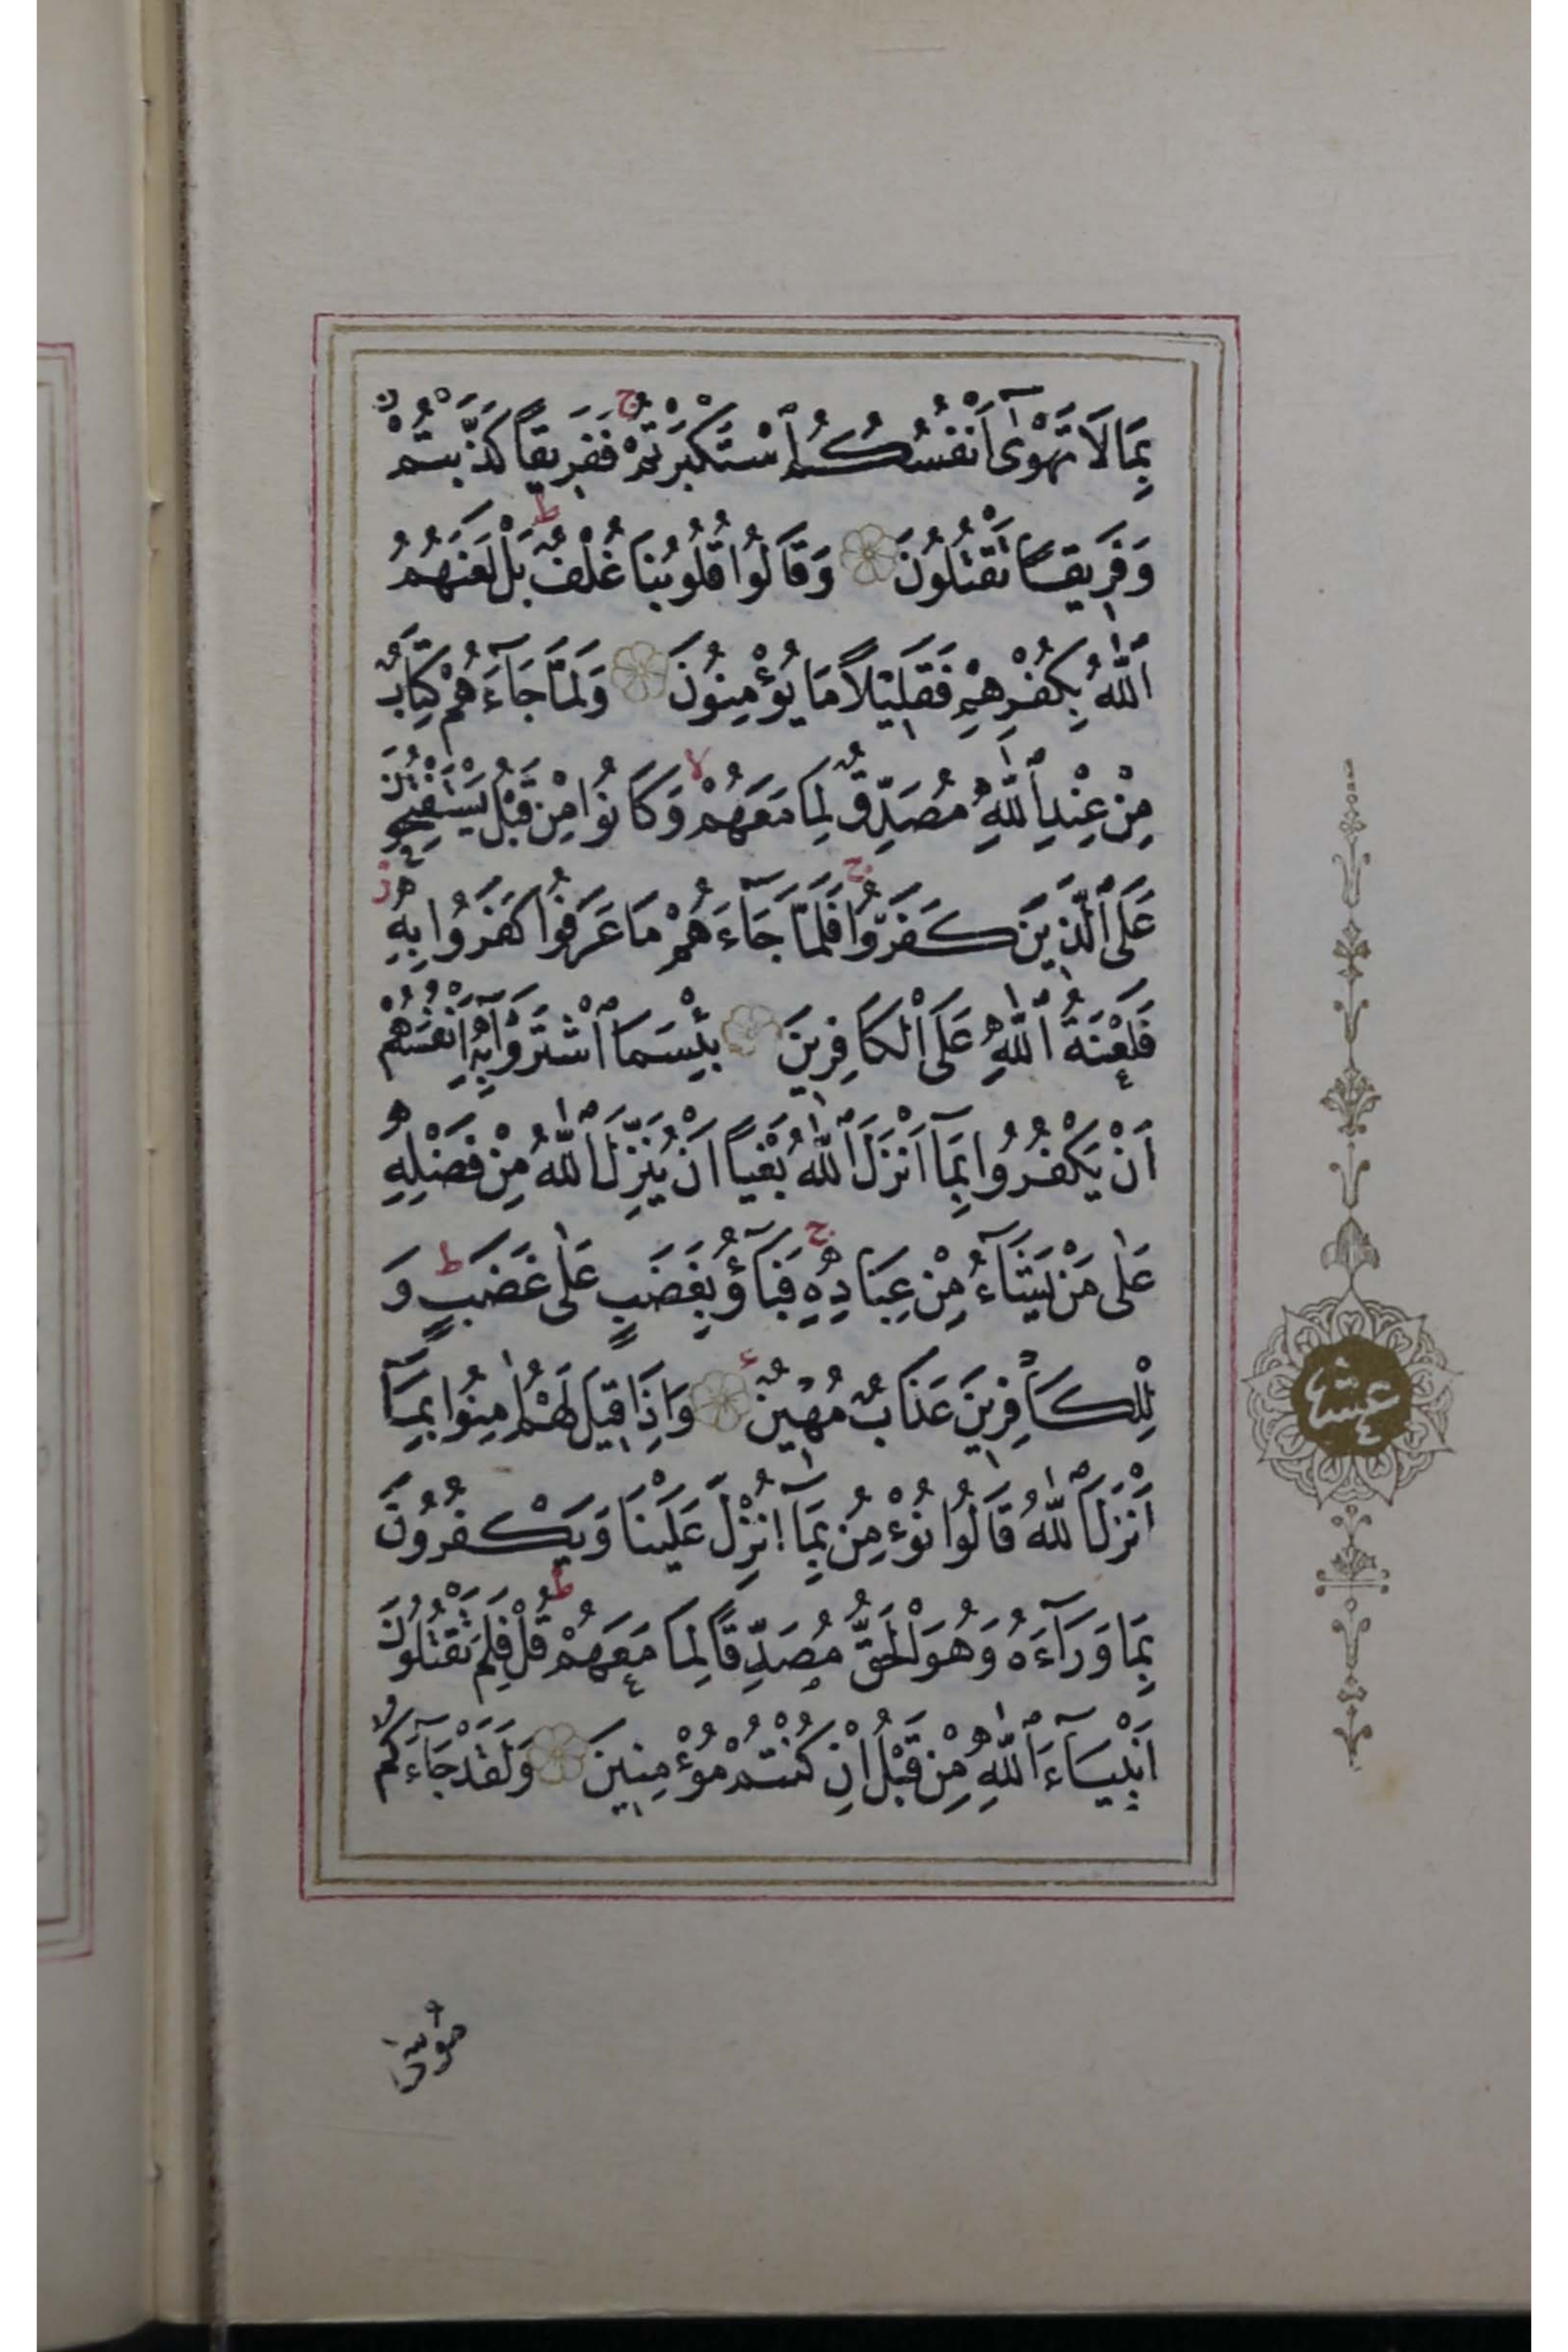 بِمَا لَا تَهْوٰٓى اَنْفُسُكُمُ ٱسْتَكْبَرْتُمْ ج فَفَرِيقًا كَذَّبْتُمْ
وَفَرِيقًا تَقْتُلُونَ وَقَالُوا قُلُوبُنَا غُلْفٌ ط بَلْ لَعَنَهُمُ
ٱللّٰهُ بِكُفْرِهِمْ فَقَلِيلًا مَا يُؤْمِنُونَ وَلَمَّا جَآءَهُمْ كِتَابٌ
مِنْ عِنْدِ ٱللّٰهِ مُصَدِّقٌ لِمَا مَعَهُمْ لا وَكَانُوا مِنْ قَبْلُ يَسْتَفْتِحُونَ
عَلَى ٱلَّذِينَ كَفَرُوا ج فَلَمَّا جَآءَهُمْ مَا عَرَفُوا كَفَرُوا بِهِ ز
فَلَعْنَةُ ٱللّٰهِ عَلَى ٱلْكَافِرِينَ بِئْسَمَا ٱشْتَرَوْا بِهِٓ اَنْفُسَهُمْ
اَنْ يَكْفُرُوا بِمَٓا اَنْزَلَ ٱللّٰهُ بَغْيًا اَنْ يُنَزِّلَ ٱللّٰهُ مِنْ فَضْلِهِ
عَلٰى مَنْ يَشَآءُ مِنْ عِبَادِهِ ج فَبَآؤُ بِغَضَبٍ عَلٰى غَضَبٍ ط وَ
لِلْكَافِرِينَ عَذَابٌ مُهِينٌ وَاِذَا قِيلَ لَهُمْ اٰمِنُوا بِمَٓا
اَنْزَلَ ٱللّٰهُ قَالُوا نُؤْمِنُ بِمَٓا اُنْزِلَ عَلَيْنَا وَيَكْفُرُونَ
بِمَا وَرَآءَهُ وَهُوَ ٱلْحَقُّ مُصَدِّقًا لِمَا مَعَهُمْ ط قُلْ فَلِمَ تَقْتُلُونَ
اَنْبِيَآءَ ٱللّٰهِ مِنْ قَبْلُ اِنْ كُنْتُمْ مُؤْمِنِينَ وَلَقَدْ جَآءَكُمْ
عشر
موسى